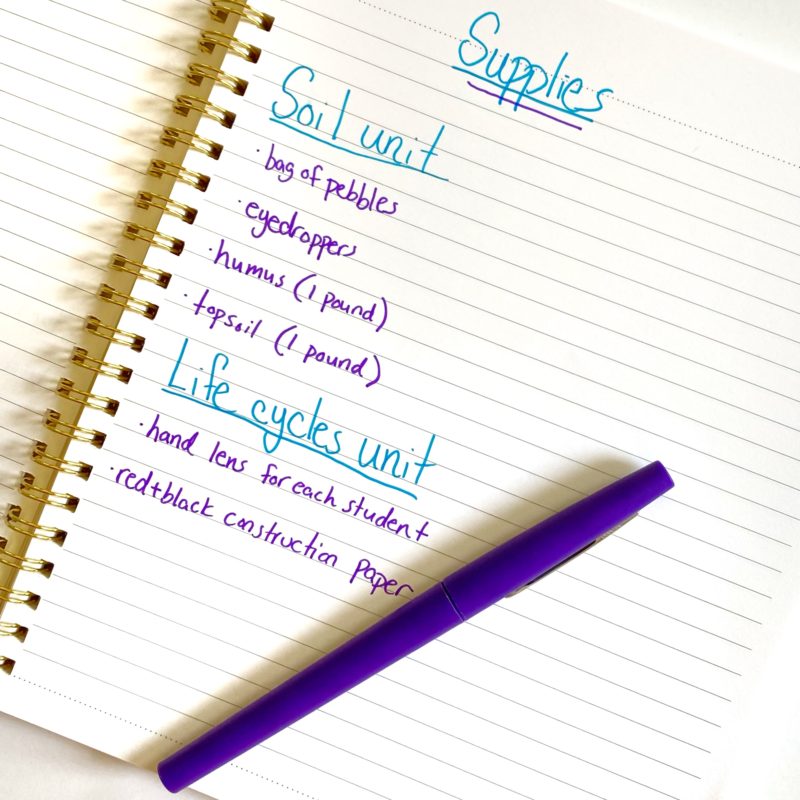 Supplies
Soil unit
· bag of pebbles
· eyedroppers
· humus (1 pound)
· topsoil (1 pound)
Life cycles unit
· hand lens for each student
· red+black construction paper